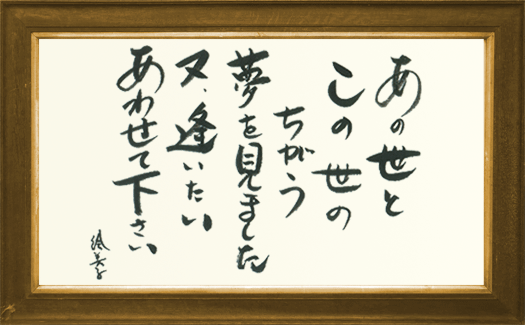 あの世と
この世の
ちがう
夢を見ました
又、逢いたい
あわせて下さい
絵美子